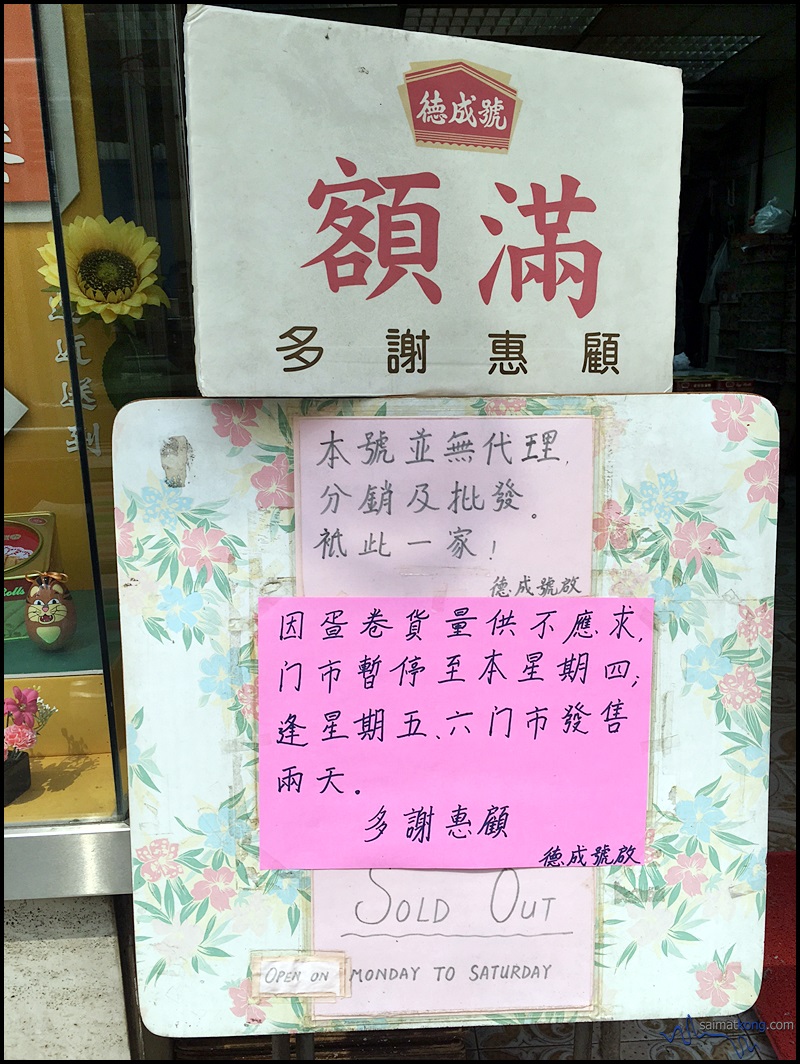 德成號
額滿
多謝惠顧
本號並無代理,
分銷及批發。
祗此一家!
德成號啟
因蛋卷貨量供不應求,
门市暫停至本星期四;
逢星期五、六门市發售
兩天。
多謝惠顧
德成號啟
SOLD OUT
OPEN ON MONDAY TO SATURDAY
送到
Rolls
saimatkong.com